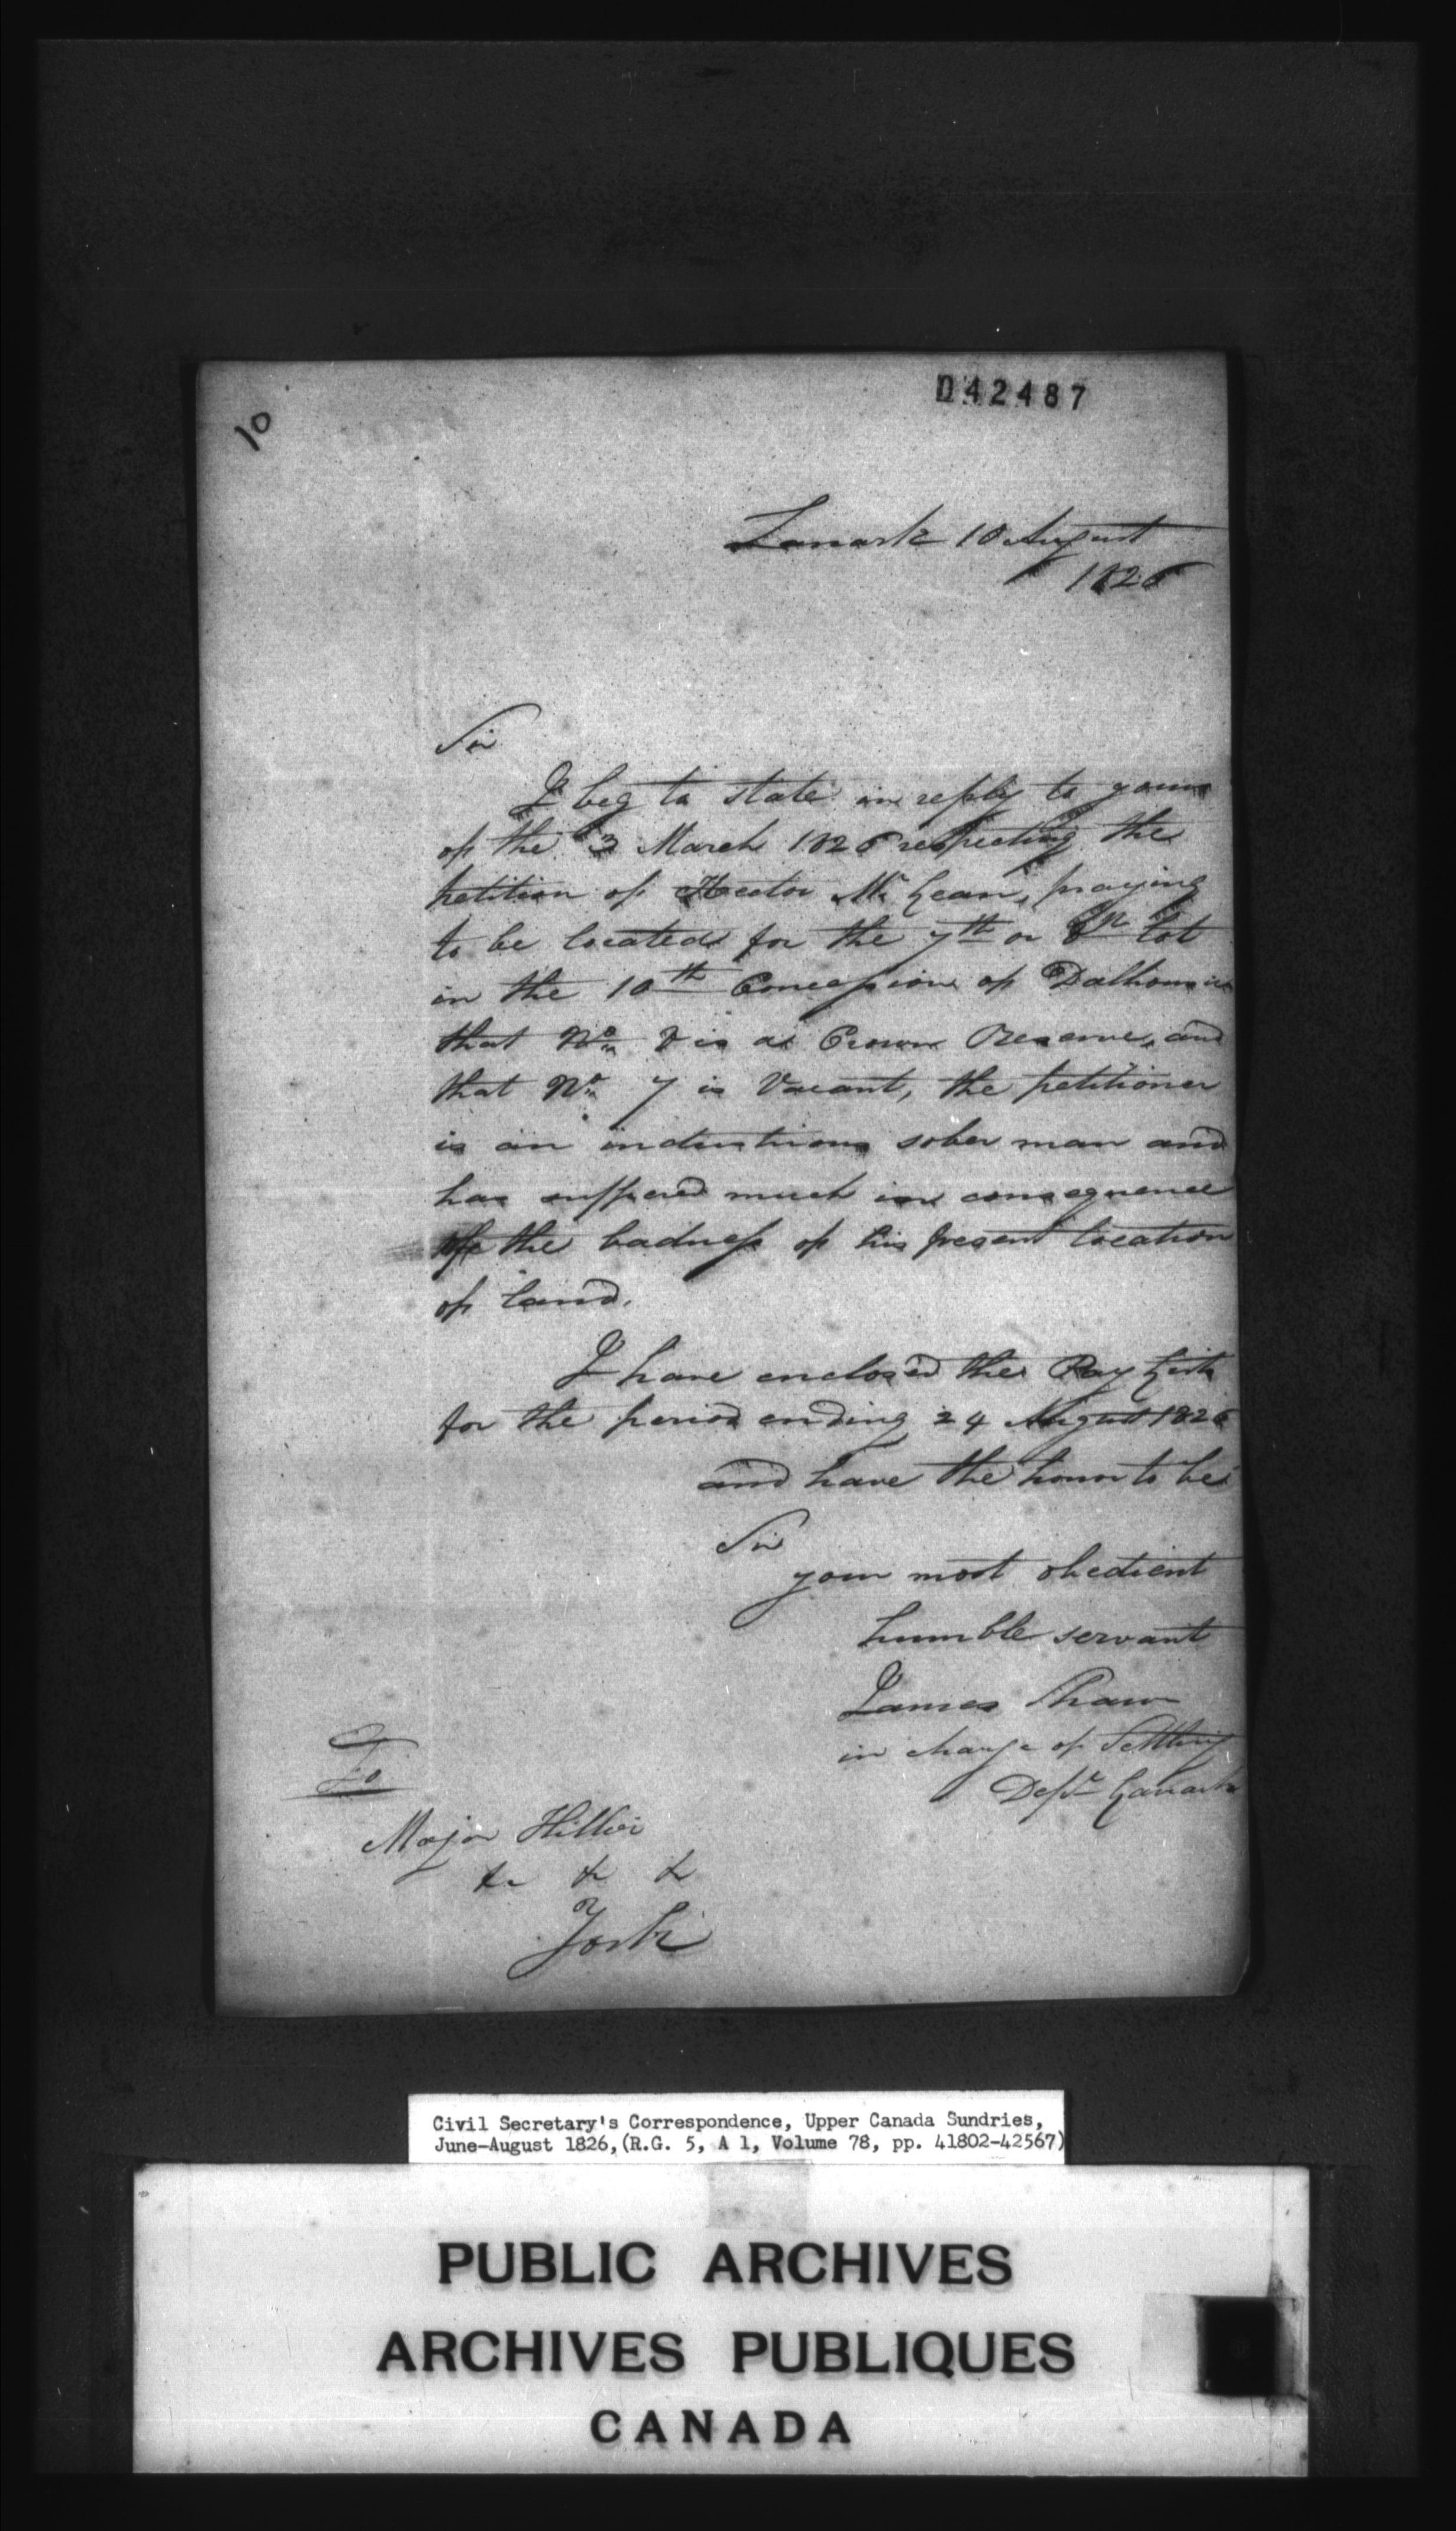 10
042487
Lanark 10 August
1826
Sir
I beg to state in reply to yours
of the 3 March 1826 respecting the
petition of Hector McLean, praying
to be located for the 7th or 8th Lot
in the 10th Concession of Dalhousie
that No. 8 is a Crown Reserve, and
that No. 7 is Vacant, the petitioner
is an industrious sober man and
has suffered much in consequence
of the badness of his present location
of land.
I have enclosed the Pay Lists
for the period ending 24 August 1826
and have the honor to be
Sir
your most obedient
humble servant
James Shaw
in charge of Settling
Dept Lanark
To
Major Hillier
&c &c &c
York
Civil Secretary's Correspondence, Upper Canada Sundries,
June-August 1826, (R.G. 5, A 1, Volume 78, pp. 41802-42567)
PUBLIC ARCHIVES
ARCHIVES PUBLIQUES
CANADA